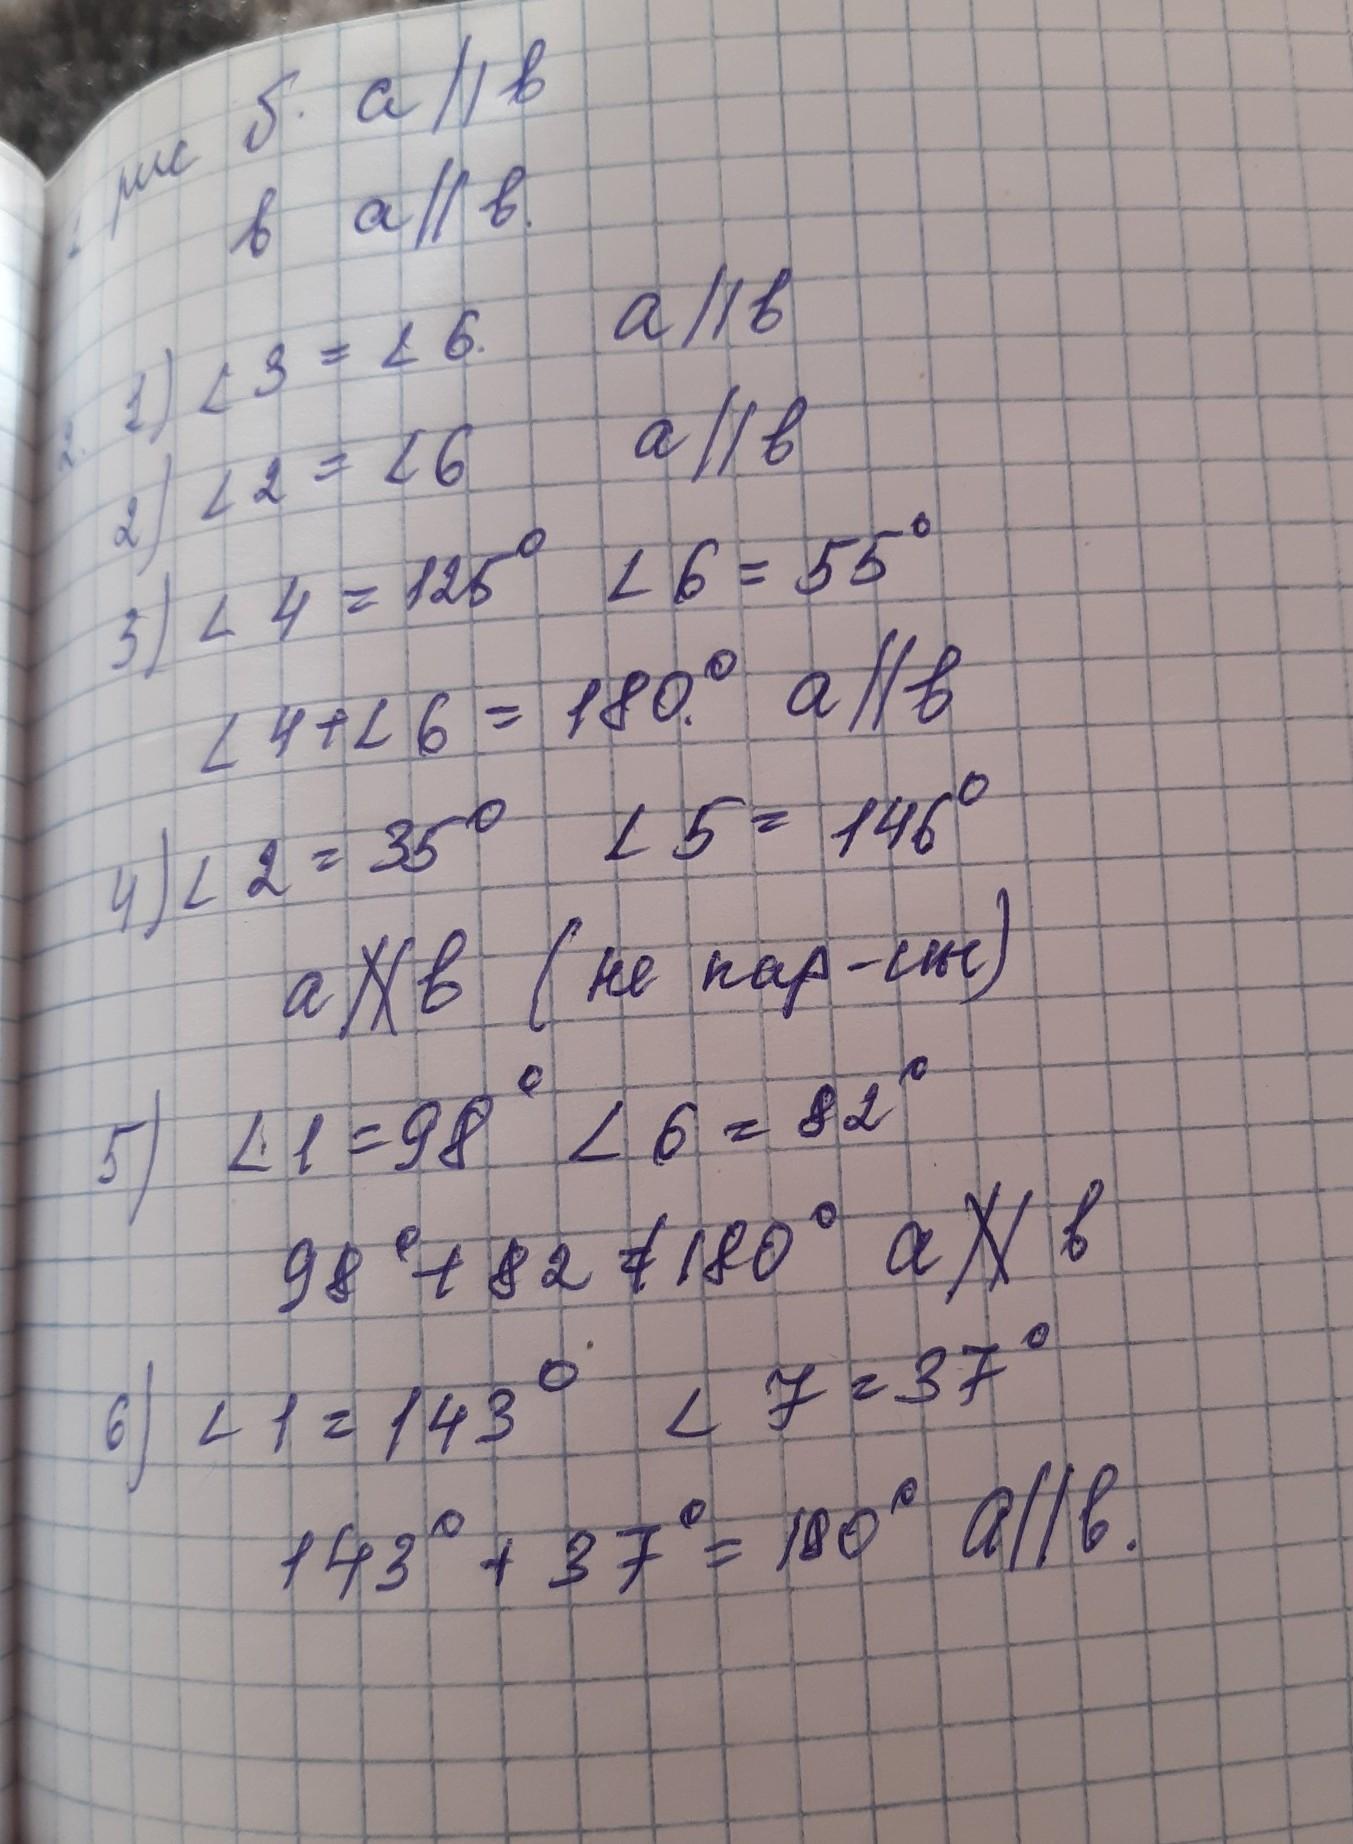 1. рис б. a || в
в a || в.
2. 1) ∠3 = ∠6. a || в
2) ∠2 = ∠6 a || в
3) ∠4 = 125° ∠6 = 55°
∠4 + ∠6 = 180.° a || в
4) ∠2 = 35° ∠5 = 146°
a ∦ в (не пар-ны)
5) ∠1 = 98° ∠6 = 82°
98° + 82 ≠ 180° a ∦ в
6) ∠1 = 143° ∠7 = 37°
143° + 37° = 180° a || в.